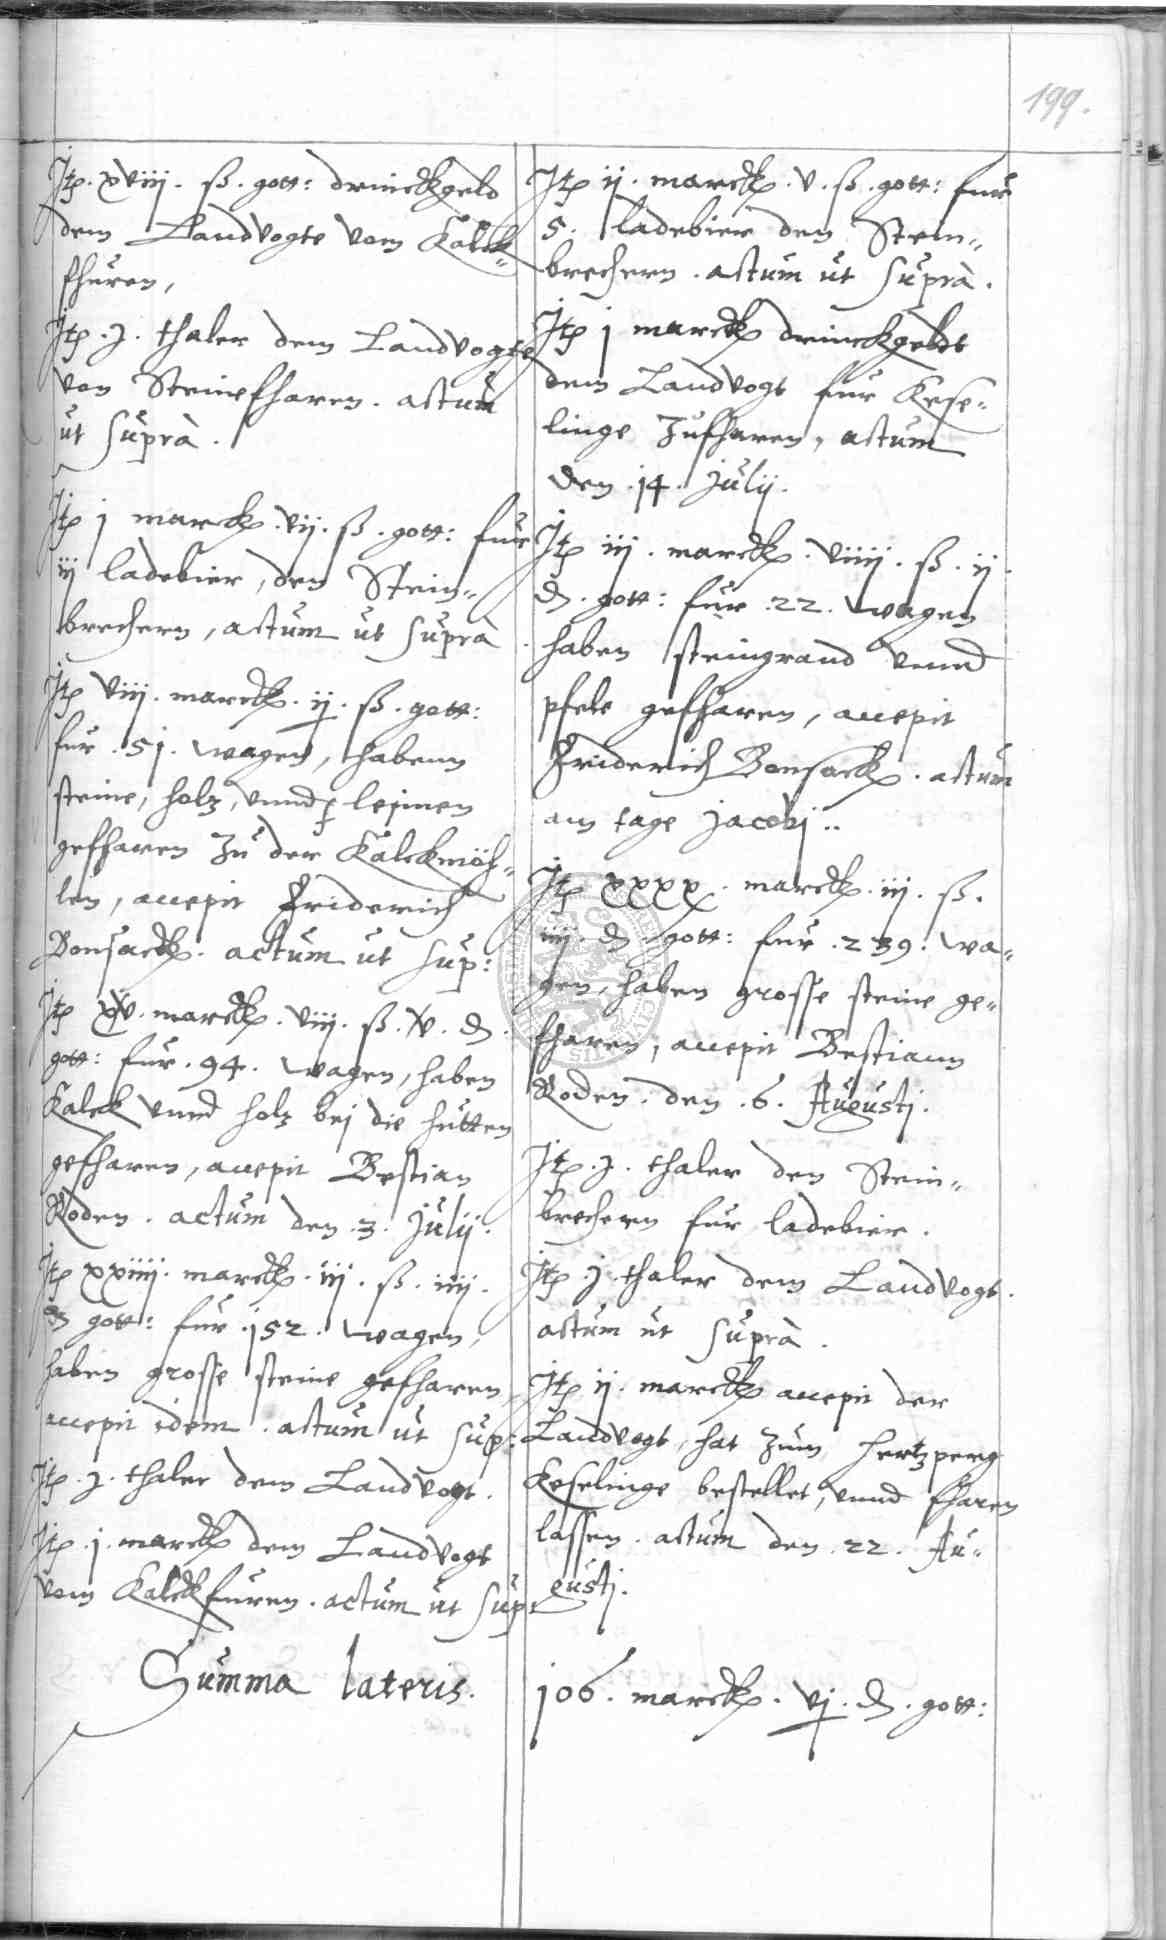 199.
Itp. xviij. ß. gott: drinckgeld
dem Landvogte vom Kalck-
fhuren,
Itp. j. thaler dem Landvogte
von Steinefharen. actum
ut suprà.
Itp j marck. vij. ß. gott: fur
iij ladebier, den Stein-
brechern, actum ut suprà
Itp viij. marck. ij. ß. gott:
fur. 51. wagen, habenn
steine, holz, unnd leimen
gefharen zu der Kalckmöh-
len, accepit Friderich
Bonsack. actum ut sup:
Itp xv. marck. viij. ß. v. d.
gott: fur. 94. wagen, haben
Kalck unnd holz bej die hutten
gefharen, accepit Bestian
Roden. actum den. 3. Julij.
Itp xxiiij. marck. iij. ß. iiij.
d gott: fur. 152. wagen,
haben grosse steine gefharen,
accepit idem. actum ut sup:
Itp. j. thaler dem Landvogt.
Itp. j. marck dem Landvogt
vom Kalckfuren. actum ut sup:
Itp ij. marck. v. ß. gott: fur
5. ladebier den Stein-
brechern. actum ut suprà.
Itp j marck drinckgeldt
dem Landvogt fur Kese-
linge zufharen, actum
den. 14. Julij.
Itp iij. marck. viiij. ß. ij.
d. gott: fur. 22. wagen
haben steingrand unnd
pfele gefharen, accepit
Friderich Bonsack. actum
am tage Jacobj..
Itp xxxx. marck. iij. ß.
iiij. d. gott: fur. 239. wa-
gen, haben grosse steine ge-
fharen, accepit Bestiann
Roden. den. 6. Augustj.
Itp. j. thaler den Stein-
brechern fur ladebier.
Itp. j. thaler dem Landvogt.
actum ut suprà.
Itp ij. marck accepit der
Landvogt, hat zum hertzperg
Keselinge bestellet, unnd fharen
lassen. actum den. 22. Au-
gustj.
Summa lateris. 106. marck. vj. d. gott: